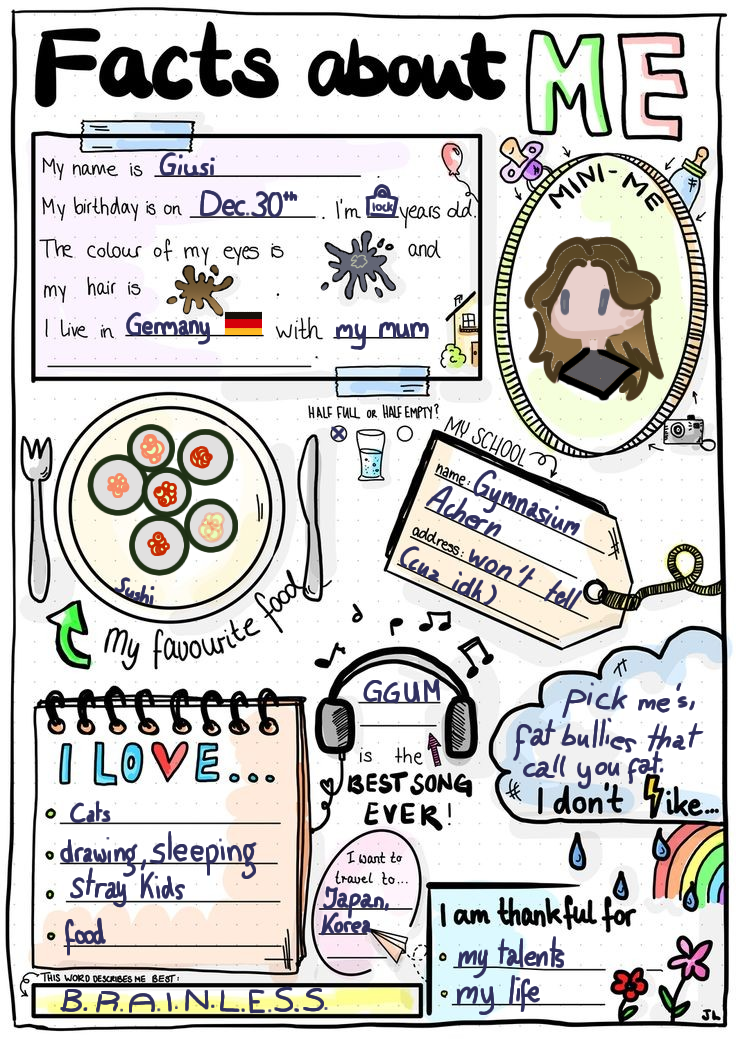 Facts about ME
My name is Giusi
My birthday is on Dec. 30th. I'm lock years old.
The colour of my eyes is and
my hair is .
I live in Germany with my mum
.
MINI-ME
HALF FULL OR HALF EMPTY?
MY SCHOOL
name: Gymnasium
Achern
address: won't tell
(cuz idk)
Sushi
My favourite food
GGUM
is the
BEST SONG
EVER!
Pick me's,
fat bullies that
call you fat.
I don't like...
I LOVE...
Cats
drawing, sleeping
Stray Kids
food
I want to
travel to...
Japan,
Korea
I am thankful for
my talents
my life
THIS WORD DESCRIBES ME BEST:
B.R.A.I.N.L.E.S.S.
JL